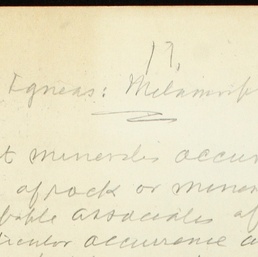 17.
Igneas: Metamorph
t minerals occur
of rock or miner
bable associates of
ticular occurrence a